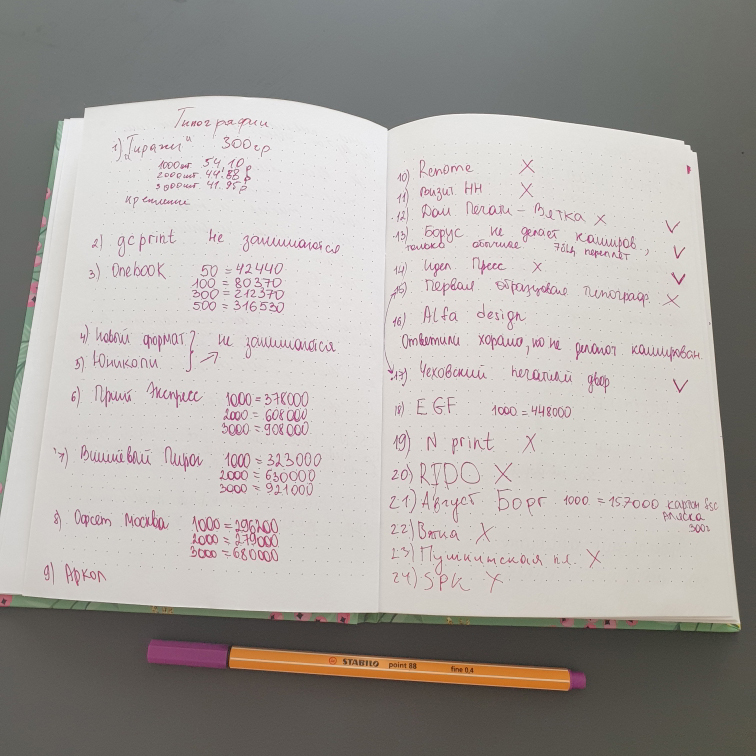 Типографии
1) "Тиражи" 300гр
1000шт. 54,10
2000шт. 44.88 р
3000шт. 41.95 р
крепление
2) gcprint не занимаются
3) Onebook 50 = 42440
100 = 80370
300 = 212370
500 = 316530
4) Новый формат } не занимаются
5) Юникопи
6) Принт Экспресс 1000 = 378000
2000 = 608000
3000 = 908000
7) Вишнёвый Пирог 1000 = 323000
2000 = 630000
3000 = 921000
8) Офсет Москва 1000 = 296400
2000 = 279000
3000 = 680000
9) Аркол
10) Renome X
11) Визит НН X
12) Дом Печати - Вятка X
13) Борус не делает каширов.,
только обычные 7БЦ переплёт
14) Идел Пресс X
15) Первая образцовая типограф. X
16) Alfa design
Ответили хорошо, но не делают каширован.
17) Чеховский печатный двор
18) EGF 1000 = 448000
19) N print X
20) RIDO X
21) Август Борг 1000 = 157000 картон fsc
аляска
300г
22) Вятка X
23) Пушкинская пл. X
24) SPK X
STABILO point 88 fine 0.4